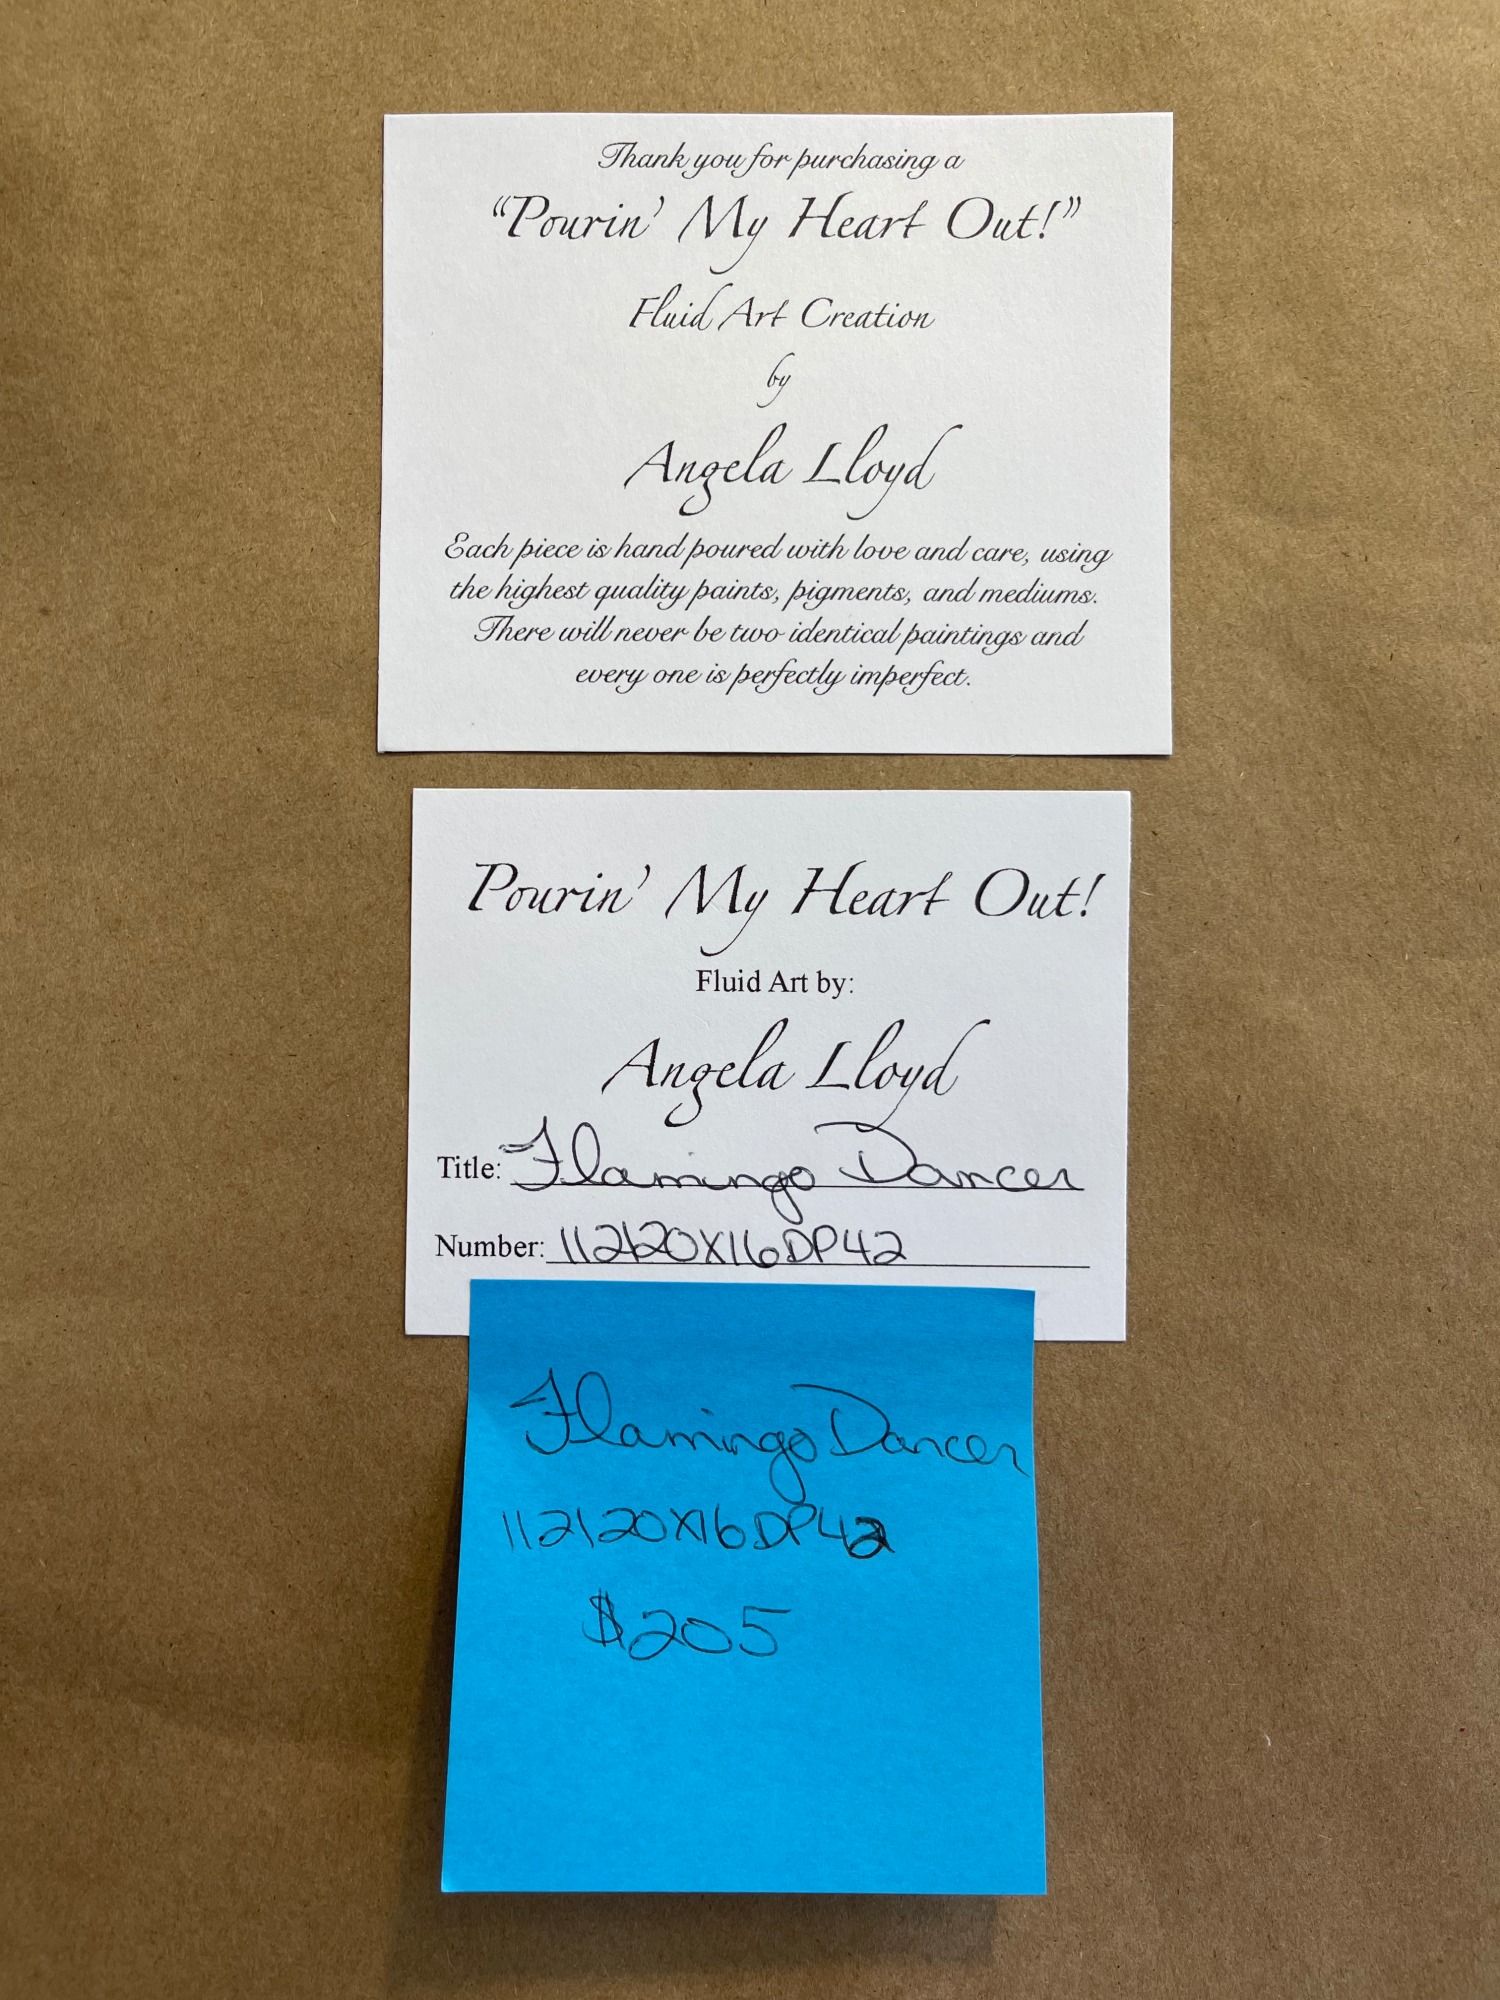 Thank you for purchasing a
“Pourin’ My Heart Out!”
Fluid Art Creation
by
Angela Lloyd
Each piece is hand poured with love and care, using
the highest quality paints, pigments, and mediums.
There will never be two identical paintings and
every one is perfectly imperfect.
Pourin’ My Heart Out!
Fluid Art by:
Angela Lloyd
Title: Flamingo Dancer
Number: 112120X16DP42
Flamingo Dancer
112120X16DP42
$205